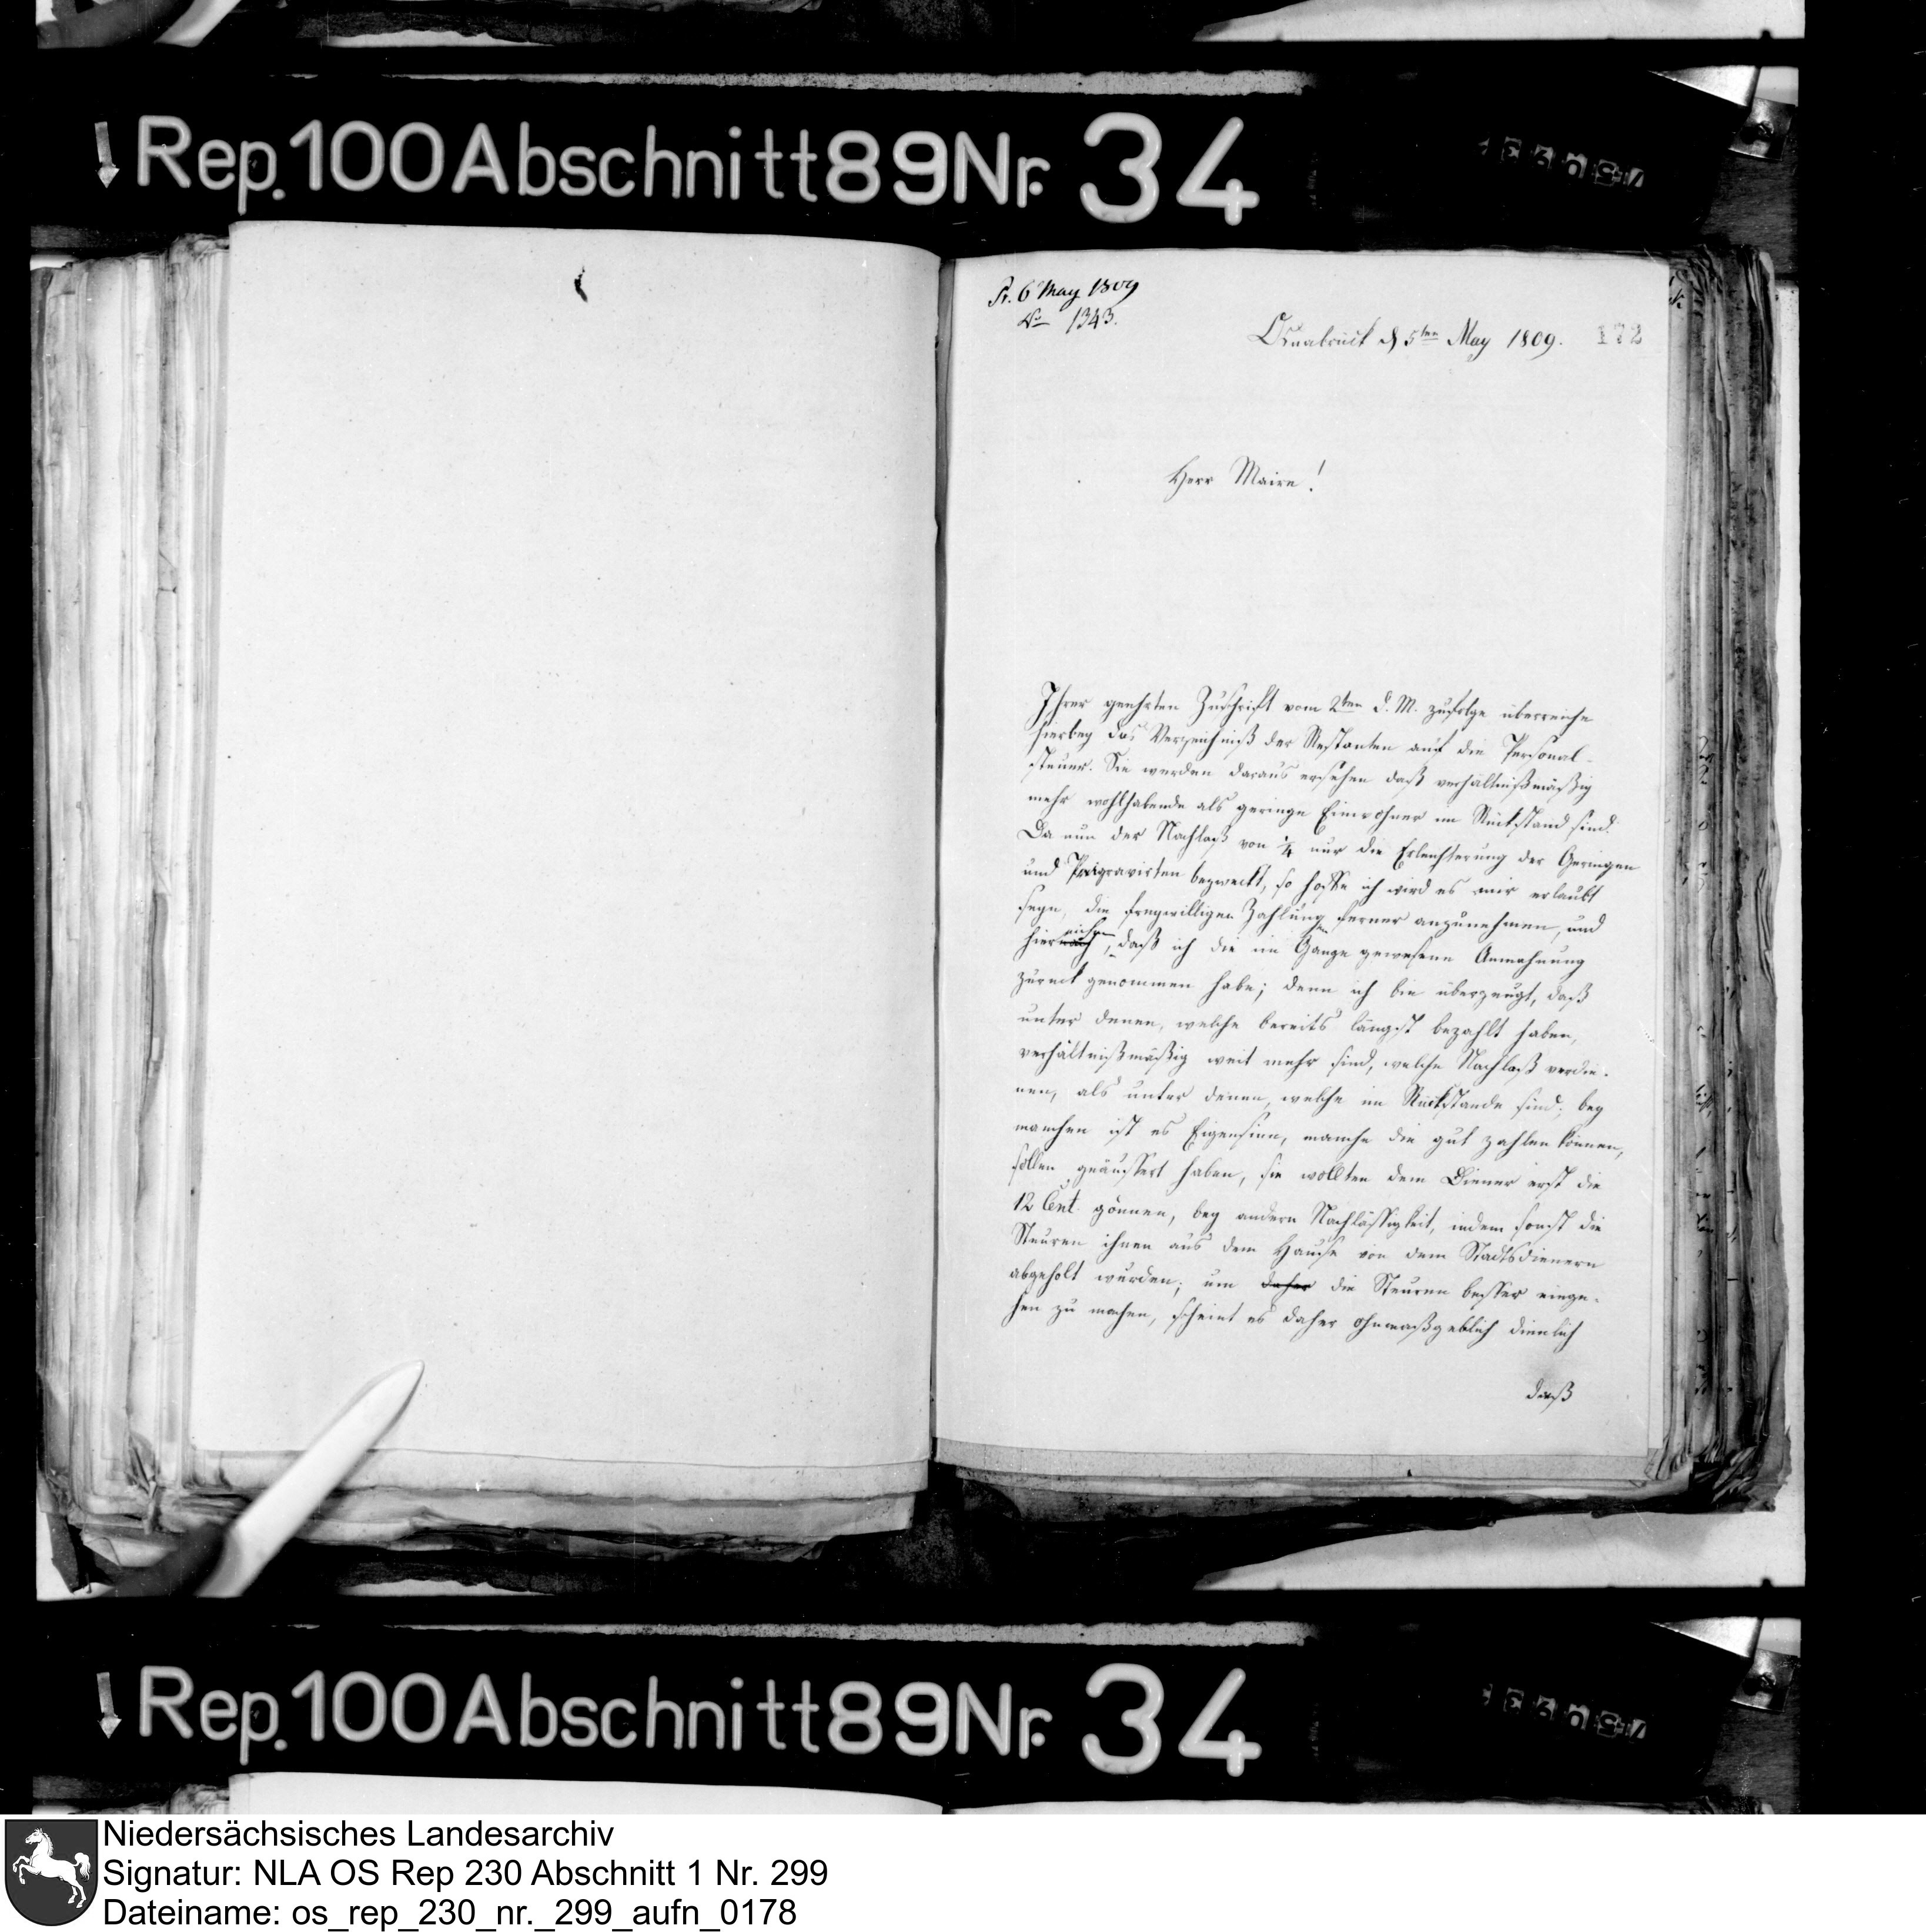 Rep. 100 Abschnitt 89 Nr. 34
Pr. 6 May 1809
No 1343.
Osnabrück d 5ten May 1809.
172
Herr Maire!
Ihrer geehrten Zuschrift vom 2ten d. M. zufolge überreiche
hierbey das Verzeichniß der Restanten auf die Personal-
steuer. Sie werden daraus ersehen daß verhältnißmäßig
mehr wohlhabende als geringe Einwohner im Rückstand sind.
Da nun der Nachlaß von ¼ nur die Erleichterung der Geringen
und Prägravirten bezweckt, so hoffe ich wird es mir erlaubt
seyn, die freywilligen Zahlungen ferner anzunehmen, und
hier, daß ich die im Gange gewesene Anmahnung
zurück genommen habe; denn ich bin überzeugt, daß
unter denen, welche bereits längst bezahlt haben,
verhältnißmäßig weit mehr sind, welche Nachlaß verdie-
nen, als unter denen, welche im Rückstande sind; bey
manchen ist es Eigensinn, manche die gut zahlen können,
sollen geäussert haben, sie wollten dem Diener erst die
12 Cent. gönnen, bey andern Nachlässigkeit, indem sonst die
Steuren ihnen aus dem Hause von dem Stadtsdienern
abgeholt wurden; um daher die Steuren besser einge-
hen zu machen, scheint es daher ohnmaßgeblich dienlich
daß
Rep. 100 Abschnitt 89 Nr. 34
Niedersächsisches Landesarchiv
Signatur: NLA OS Rep 230 Abschnitt 1 Nr. 299
Dateiname: os_rep_230_nr._299_aufn_0178